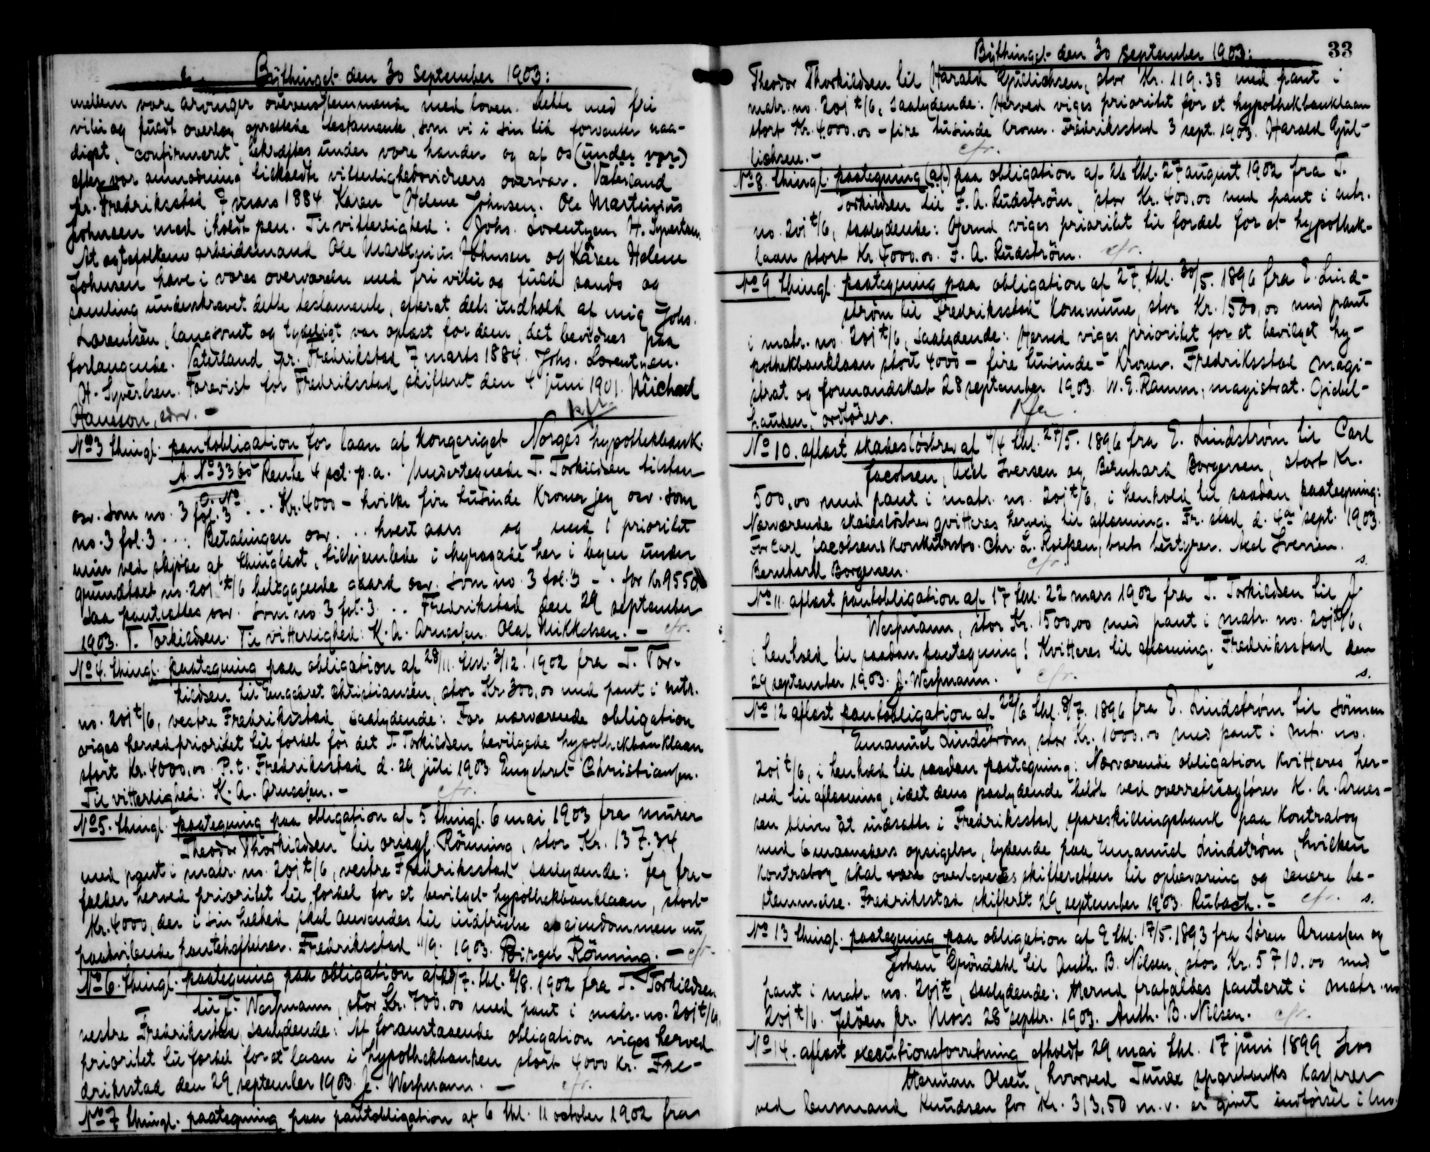 Bythinget den 30 september 1903:
mellem vore arvinger overensstemmende med loven. Dette med fri
vilie og fuldt overlæg oprettede testamente, som vi i sin tid forventer naa-
digst confirmeret, bekræftes under vore hænder og af os (under vor)
efter vor anmodning tilkaldte vitterlighedsvidners overvær. Vaterland
pr. Fredriksstad 7 mars 1884 Karen Helene Johnsen. Ole Martinius
Johnsen med iholdt pen. Til vitterlighed: Johs. Lorentzen H. Syvertsen
At ægtefolkene arbeidsmand Ole Martinius Johnsen og Karen Helene
Johnsen have i vores overværelse med fri vilie og fuld sands og
samling underskrevet dette testamente, efterat dets indhold af mig Johs.
Lorentsen, langsomt og tydeligt var oplæst for dem, det bevidnes paa
forlangende. Vaterland pr. Fredriksstad 7 marts 1884. Johs. Lorentzen.
H. Syvertsen. Forevist for Fredriksstad skifteret den 4 juni 1901. Michael
Hansson, edsv. -
No 3 thingl. pantobligation for laan af kongeriget Norges hypothekbank.
A. No 3360 Rente 4 pct. p.a. Undertegnede T. Torkildsen tilstaar
osv. som no. 3 fol. 3 ... Kr. 4000 - hvilke fire tusinde Kroner jeg osv. som
no. 3 fol. 3 ... Betalingen osv. ... hvert aars og med 1 prioritet
min ved skjøde af thinglæst, tilhjemlede i hypossate her i byen under
grundtaxt no. 201 t/6 beliggende gaard osv. som no. 3 fol. 3 - . for Kr 9550
saa pantsættes osv. som no 3 fol. 3 .. Fredriksstad den 29 september
1903. T. Torkildsen. Til vitterlighed: K. A. Arnessen. Olaf Mikkelsen. - cfr.
No 4. thingl. paategning paa obligation af 28/11 thl. 3/12. 1902 fra T. Tor-
kildsen til Engebret Christiansen, stor Kr 300,00 med pant i mtr.
no. 201 t/6, vestre Fredriksstad, saalydende: For nærværende obligation
viges herved prioritet til fordel for det T. Torkildsen bevilgede hypothekbanklaan
stort Kr. 4000,00. P.t. Fredriksstad d. 29 juli 1903 Engebret Christiansen.
Til vitterlighed: K. A. Arnessen. - cfr.
No 5. thingl. paategning paa obligation af 5 thingl. 6 mai 1903 fra murer
Theodor Thorkildsen til orsagf. Rönning, stor Kr. 137.34
med pant i matr. no. 201 t/6, vestre Fredriksstad saalydende: Jeg fra-
falder herved prioritet til fordel for et bevilget hypothekbanklaan, stort
Kr. 4000, der i sin helhed skal anvendes til indfrielse af eiendommen nu
paahvilende pantehæftelser. Fredriksstad 11/9 1903. Birger Rönning. - cfr.
No 6. thingl. paategning paa obligation af 28/7. thl. 2/8. 1902 fra T. Torkildsen
til J. Wespmann, stor Kr. 700,00 med pant i matr. no. 201 t/6,
vestre Fredriksstad, saalydende: Af foranstaaende obligation viges herved
prioritet til fordel for et laan i Hypothekbanken stort 4000 kr. Fre-
driksstad den 29 september 1903. J. Wespmann. - cfr.
No 7 thingl. paategning paa pantobligation af 6 thl. 11 october 1902 fra
Bythinget den 30 september 1903: 33
Theodor Thorkildsen til Harald Gullichsen, stor Kr. 119.38 med pant i
matr. no. 201 t/6, saalydende: Herved viges prioritet for et hypothekbanklaan
stort Kr. 4000.00 - fire tusinde kroner. Fredriksstad 3 sept. 1903. Harald Gul-
lichsen. - cfr.
No 8. thingl. paategning (af) paa obligation af 26 thl. 27 august 1902 fra T.
Torkildsen til F. A. Lüdström, stor Kr. 400,00 med pant i mtr.
no. 201 t/6, saalydende: Herved viges prioritet til fordel for et hypothek-
laan stort Kr 4000.00. F. A. Lüdström. cfr.
No 9 thingl. paategning paa obligation af 27. thl. 30/5. 1896 fra E. Lind-
ström til Fredriksstad kommune, stor Kr. 1500,00 med pant
i matr. no. 201 t/6, saalydende: Herved viges prioritet for et bevilget hy-
pothekbanklaan stort 4000 - fire tusinde - kroner. Fredriksstad magi-
strat og formandskab 28 september 1903. W. E. Ramm, magistrat.
hausen, ordfører.
No 10. aflæst skadesløsbrev af 4/4 thl. 27/5. 1896 fra E. Lindstrøm til Carl
Jacobsen, Axel Iversen og Bernhard Borgersen, stort Kr.
500,00 med pant i matr. no. 201 t/6, i henhold til saadan paategning:
Nærværende skadesløsbrev qvitteres herved til aflæsning. Fr. stad d. 4de sept. 1903.
For Carl Jacobsens konkursbo. Chr. L. Roefen, boets bestyrer. Axel Iversen.
Bernhard Borgersen. cfr. s.
No 11 aflæst pantobligation af 17 thl. 22 mars 1902 fra T. Torkildsen til J
Wespmann, stor Kr. 1500,00 med pant i matr. no. 201 t/6,
i henhold til saadan paategning: Kvitteres til aflæsning. Fredriksstad den
29 september 1903. J. Wespmann. cfr. s.
No 12 aflæst pantobligation af 22/6 thl. 8/7. 1896 fra E. Lindström til sönnen
Emanuel Lindström, stor Kr. 1000.00 med pant i mtr. no.
201 t/6, i henhold til saadan paategning: Nærværende obligation kvitteres her-
ved til aflæsning, idet dens paalydende beløb ved overretssagfører K. A. Arnes-
sen bliver at indsætte i Fredriksstad spareskillingsbank paa kontrabog
med 6 maaneders opsigelse, lydende paa Emanuel Lindström, hvilken
kontrabog skal være overleveres skifteretten til opbevaring og senere be-
stemmelse. Fredriksstad skifteret 29 september 1903. Rubach. - cfr. s.
No 13 thingl. paategning paa obligation af 9 thl. 17/5. 1893 fra Søren Arnessen og
Johan Gröndahl til Anth. B. Nilsen, stor Kr. 5710.00 med
pant i matr. no. 201 t, saalydende: Herved frafaldes panteret i matr. no
201 t/6. Jelöen pr. Moss 28 septbr. 1903. Anth. B. Nilsen. cfr.
No 14. aflæst executionsforretning afholdt 29 mai thl. 17 juni 1899 hos
Herman Olsen, hvorved Tunø sparebanks kasserer
ved lensmand Knudsen for Kr. 313,50 m.v. er givet indførsel i